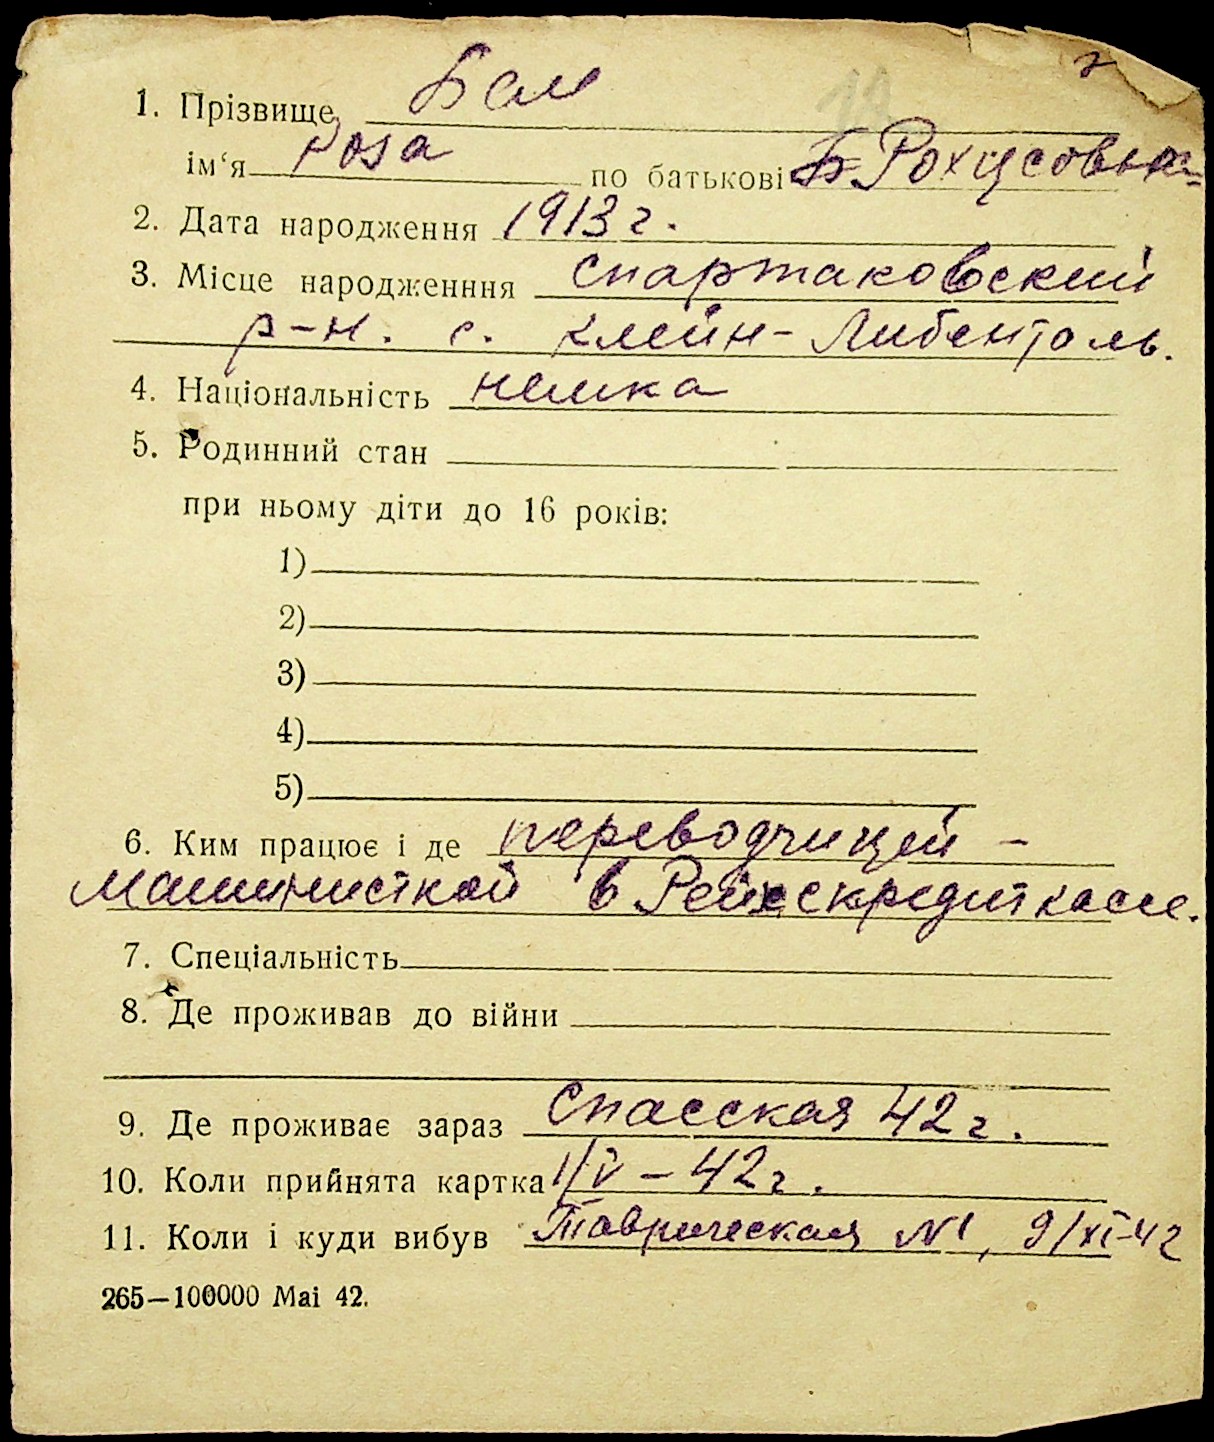 1. Прізвище Бам
ім‘я Роза по батькові Б. Рохусовна
2. Дата народження 1913 г.
3. Місце народженння Спартаковский
р-н. с. Клейн-Либенталь.
4. Національність немка
5. Родинний стан
при ньому діти до 16 років:
1)
2)
3)
4)
5)
6. Ким працює і де переводчицей -
машинисткой в Рейхскредиткассе.
7. Спеціальність
8. Де проживав до війни
9. Де проживає зараз Спасская 42 г.
10. Коли прийнята картка 1/V – 42 г.
11. Коли і куди вибув Таврическая №1, 9/XI-42
265—100000 Mai 42.